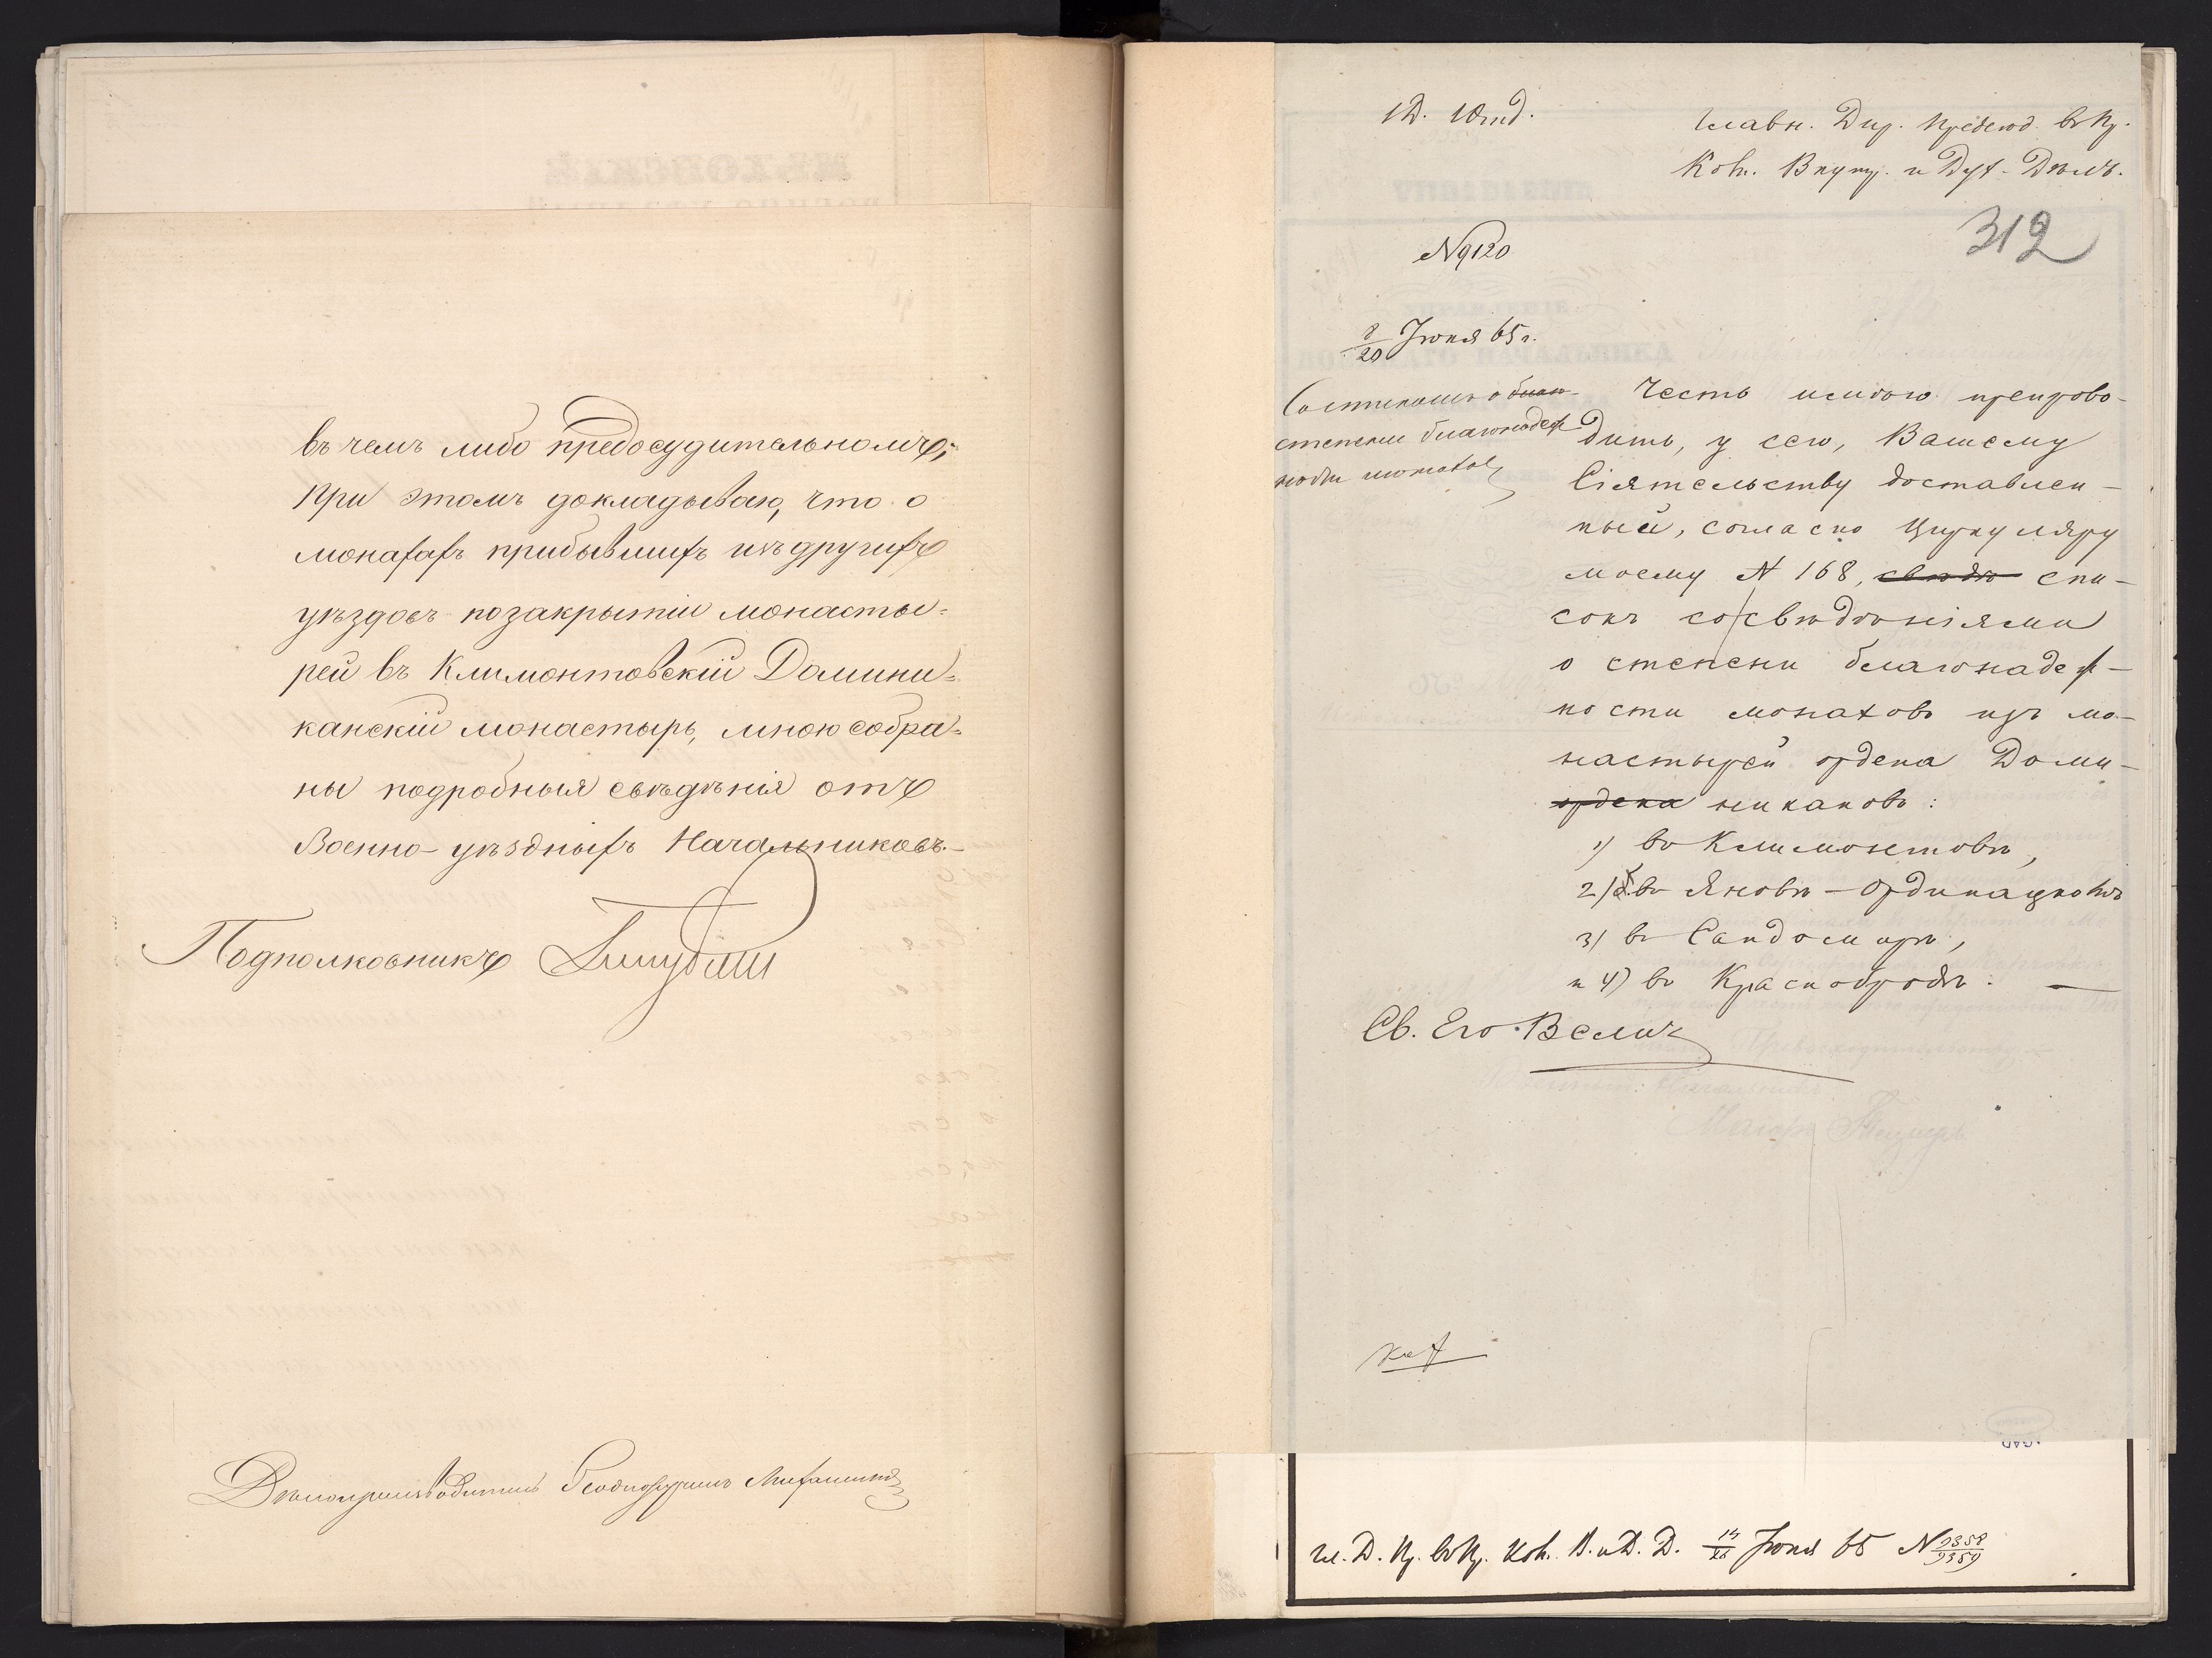 въ чемъ либо предосудительномъ;
При этомъ докладываю, что о
монахахъ прибывшихъ изъ другихъ
уѣздовъ по закрытіи монасты=
рей въ Климонтовскій Домини=
канскій монастырь, мною собра=
ны подробныя свѣдѣнія отъ
Военно-уѣздныхъ Начальниковъ.-
Подполковникъ
Дѣлопроизводитель
Главн. Дир. Предсѣд. въ Пр.
Ком. Внутр. и Дух. Дѣлъ.
312
№ 9120
8/20 Іюня 65 г.
Съ спискомъ о благо-
степени благонадеж
ности монаховъ
Честь имѣю препрово-
дить, у сего, Вашему
Сіятельству доставлен-
ный, согласно Циркуляру
моему № 168, свѣдѣ спи-
сокъ со свѣдѣніями
о степени благонадеж-
ности монаховъ изъ мо-
настырей ордена Доми-
ордена никановъ:
1) въ Климонтовѣ,
2) въ Яновѣ-Ордина­цкомъ
3) въ Сандомирѣ,
и 4) въ Краснобродѣ. —
Св. Его Велич
Гл. Д. Пр. въ Пр. Ком. В. и Д. Д. Іюня 65 № 9358/9359